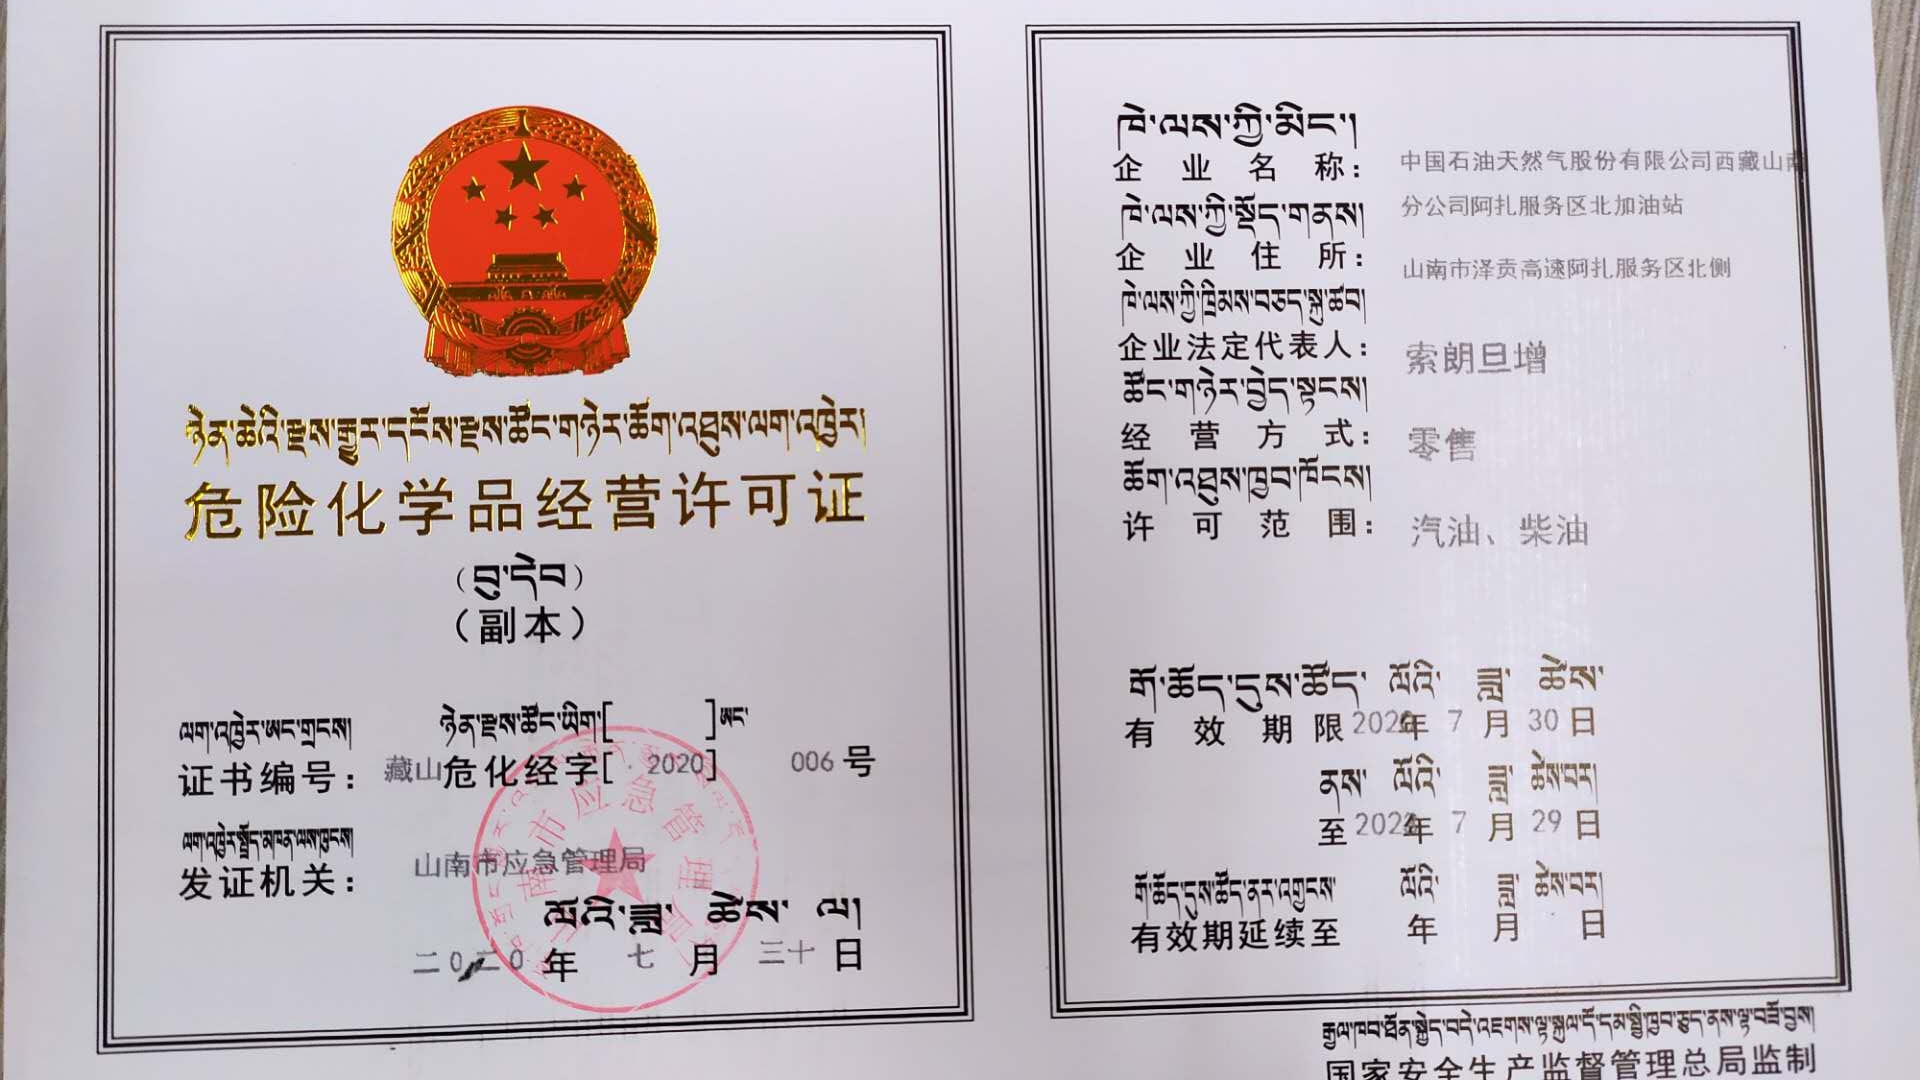 ཉེན་ཆེའི་རྫས་རྒྱུར་དངོས་རྫས་ཚོང་གཉེར་ཆོག་འཐུས་ལག་འཁྱེར།
危险化学品经营许可证
(བུ་དེབ)
(副本)
ལག་འཁྱེར་ཨང་གྲངས། ཉེན་རྫས་ཚོང་ཡིག་[ ]ཨང་
证书编号: 藏山危化经字[2020] 006号
ལག་འཁྱེར་སྤྲོད་མཁན་ལས་ཁུངས།
发证机关: 山南市应急管理局
ལོའི་ཟླ་ ཚེས་ ལ།
二0二0年 七月 三十日
山南市应急管理局
ཁེ་ལས་ཀྱི་མིང་།
企业名称: 中国石油天然气股份有限公司西藏山南
分公司阿扎服务区北加油站
ཁེ་ལས་ཀྱི་སྡོད་གནས།
企业住所: 山南市泽贡高速阿扎服务区北侧
ཁེ་ལས་ཀྱི་ཁྲིམས་བཅད་སྐུ་ཚབ།
企业法定代表人: 索朗旦增
ཚོང་གཉེར་བྱེད་སྟངས།
经营方式: 零售
ཆོག་འཐུས་ཁྱབ་ཁོངས།
许可范围: 汽油、柴油
གོ་ཆོད་དུས་ཚོད་ ལོའི་ ཟླ་ ཚེས་
有效期限 2020年 7月 30日
ནས་ ལོའི་ ཟླ་ ཚེས་བར།
至 2023年 7月 29日
གོ་ཆོད་དུས་ཚོད་ནར་འགྱངས་ ལོའི་ ཟླ་ ཚེས་བར།
有效期延续至 年 月 日
国家安全生产监督管理总局监制